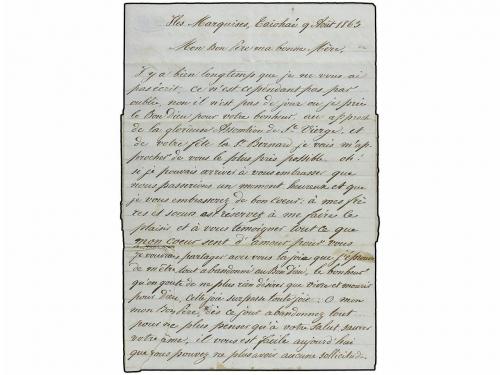 Iles Marquises, Taiohaé 9 Août 1863
Mon Bon Père ma bonne Mère,
Il y a bien longtemps que je ne vous ai
pas écrit. ce n'est cependant pas par
oubli, non il n'est pas de jour où je prie
le Bon Dieu pour votre bonheur, au approche
de la glorieuse Assomtion de Ste Vierge, et
de votre fête la St Bernard je vais m'ap-
procher de vous le plus près possible. oh!
si je pouvais arrivé à vous embrasse que
nous passerions un moment heureux et que
je vous embrasserez de bon coeur. à mes frè-
res et soeurs est réservez à me faire ce
plaisir et à vous témoigner tout ce que
mon coeur sent d'amour pour vous
je voudrais partager avec vous la joie que
de m'être tout abandonné au Bon Dieu, le bonheur
qu'on goute de ne plus rien désirer que vivre et mourir
pour Dieu, cette joie surpasse toute joie. O mon
mon Bon Père, dès ce jour abandonnez tout
pour ne plus penser qu'à votre salut sauver
votre âme, il vous est facile aujourd'hui
que vous pouvez ne plus avoir aucune sollicitude.